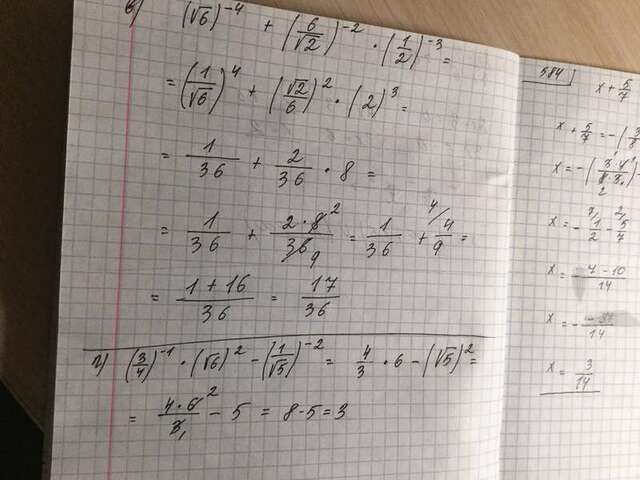 в) (√6)⁻⁴ + (6/√2)⁻² · (1/2)⁻³ =
= (1/√6)⁴ + (√2/6)² · (2)³ =
= 1/36 + 2/36 · 8 =
= 1/36 + 2·8²/36₉ = 1/36 + ⁴/4/9 =
= 1 + 16/36 = 17/36
г) (3/4)⁻¹ · (√6)² − (1/√5)⁻² = 4/3 · 6 − (√5)² =
= 4·6²/3₁ − 5 = 8 − 5 = 3
584
x + 5/7
x + 5/7 = − (3/8
x = − (
x = − ⁷/1/2 − ²/5/7
x = − 7 − 10/14
x =
x = 3/14